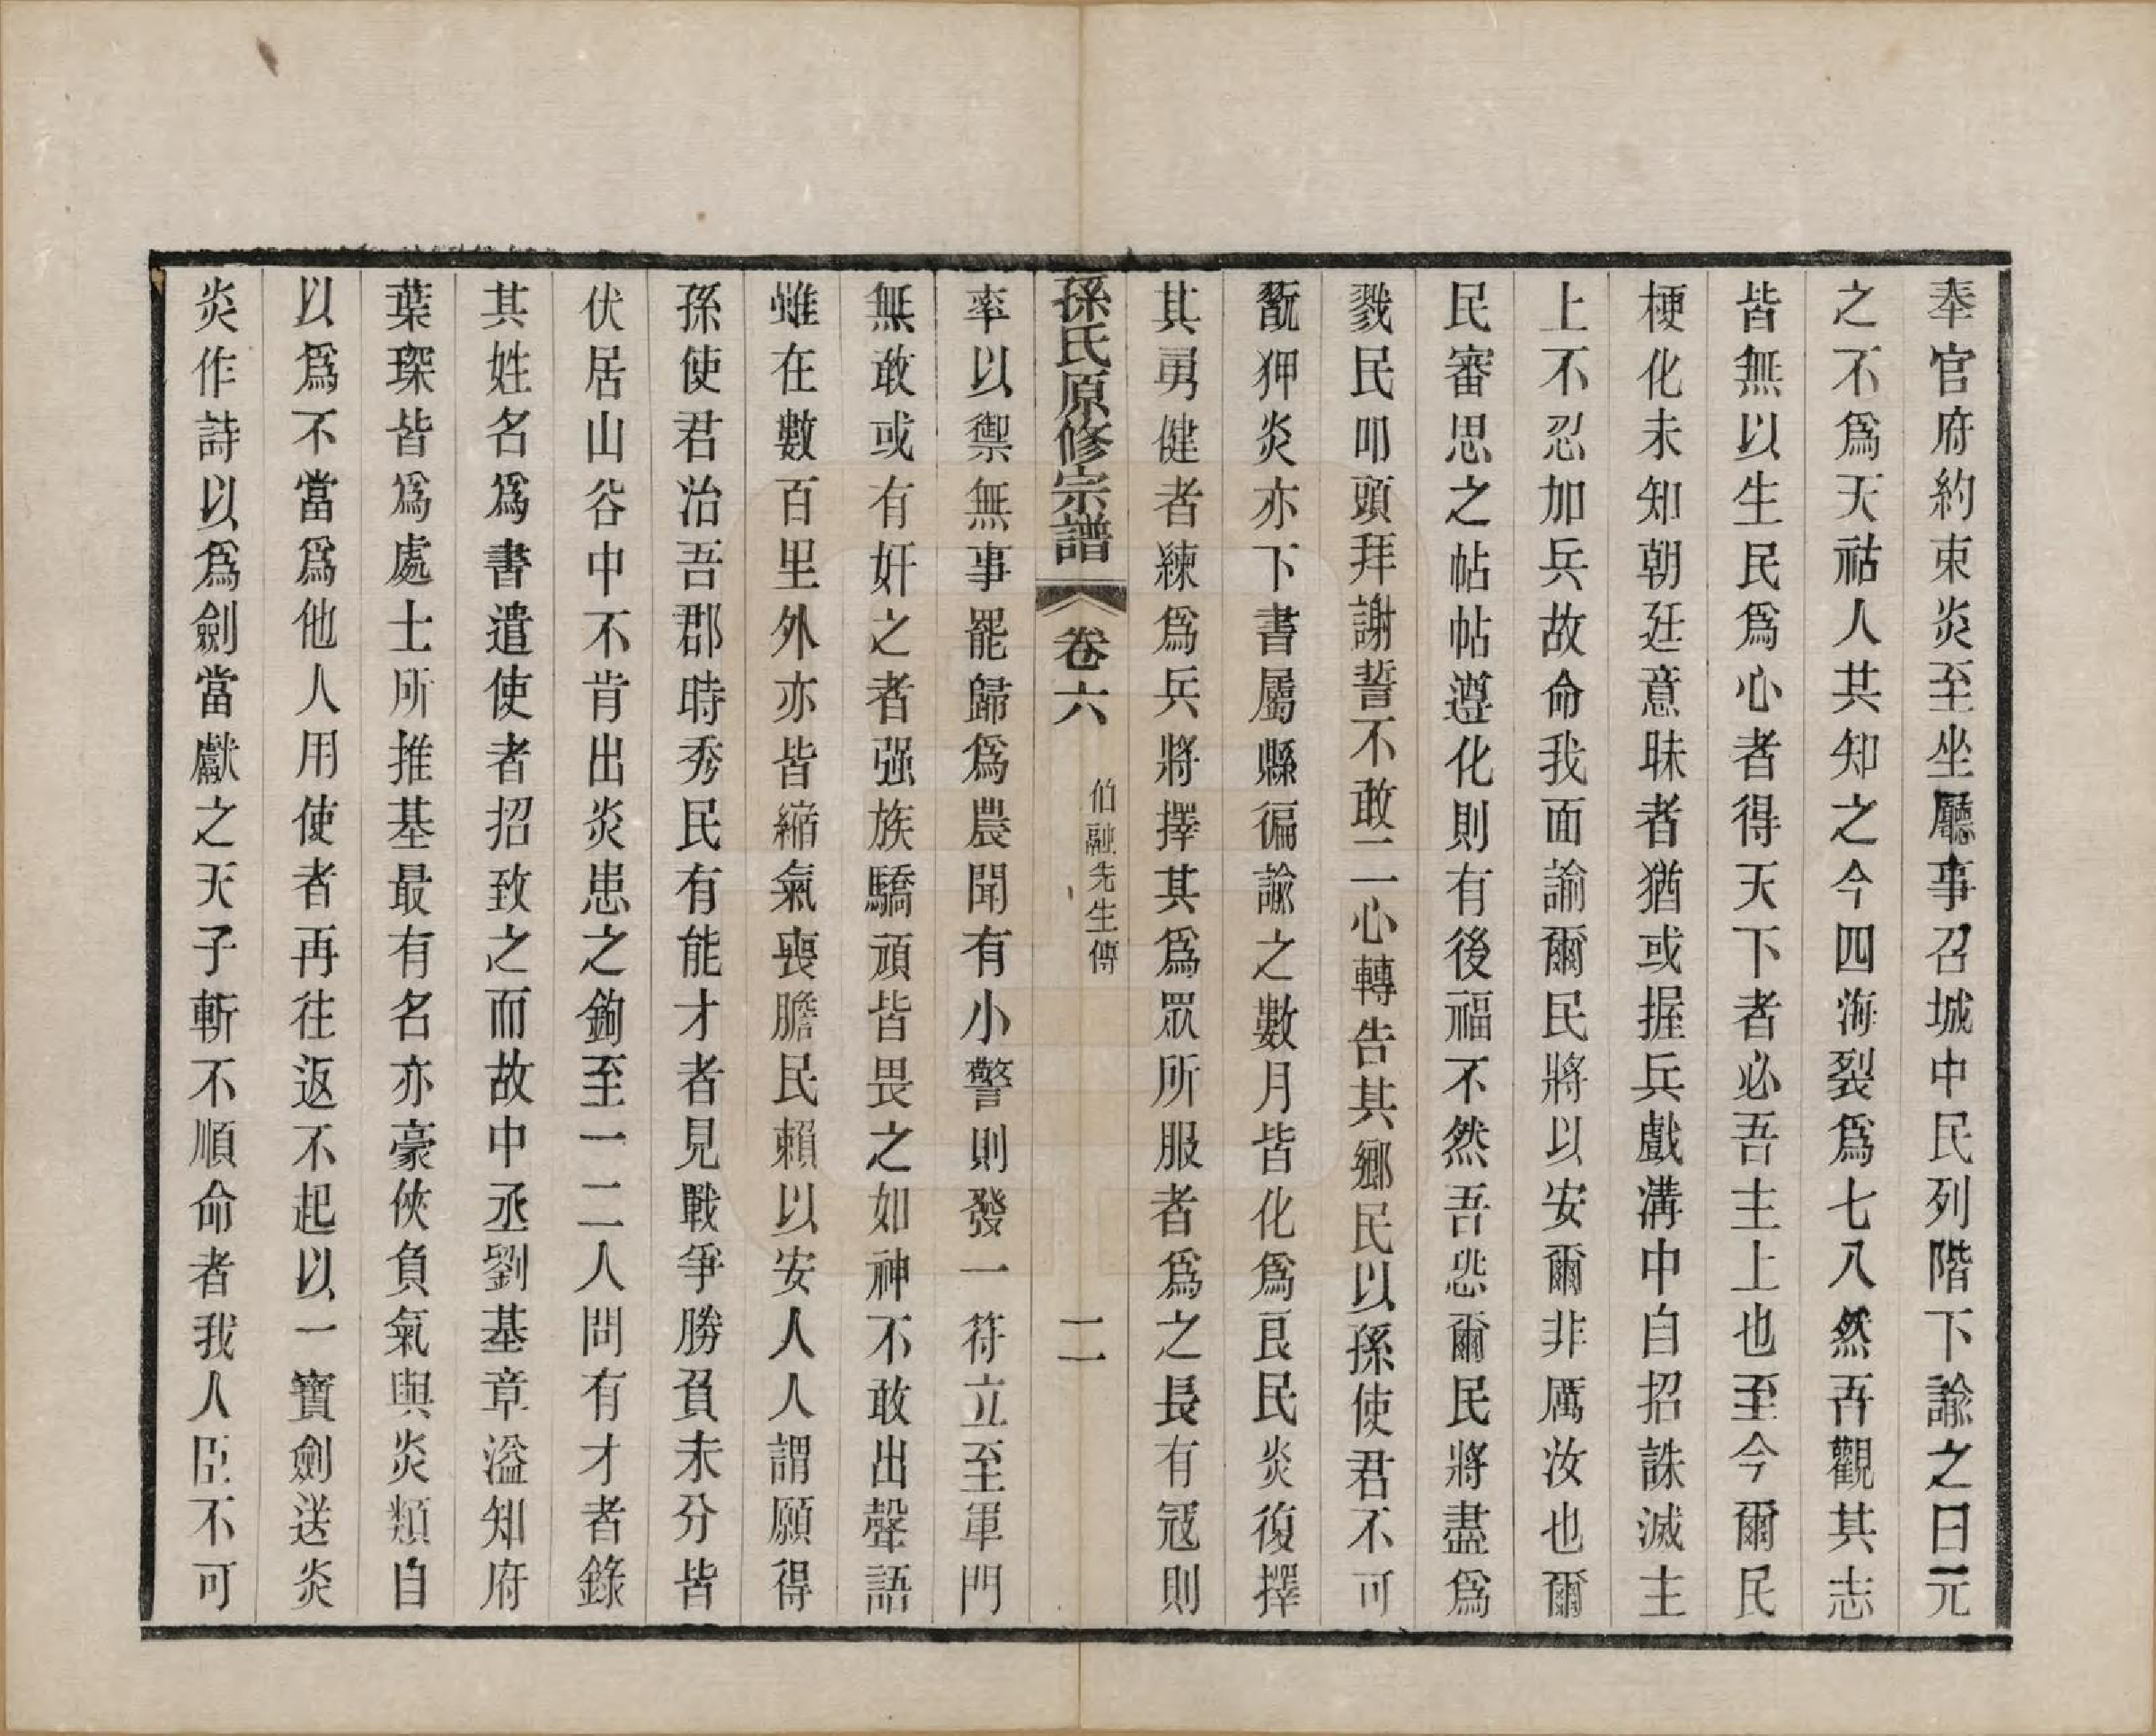 奉官府約束炎至坐廳事召城中民列階下諭之曰元
之不爲天祜人共知之今四海裂爲七八然吾觀其志
皆無以生民爲心者得天下者必吾主上也至今爾民
梗化未知朝廷意昧者猶或握兵戲溝中自招誅滅主
上不忍加兵故命我面諭爾民將以安爾非厲汝也爾
民審思之帖帖遵化則有後福不然吾恐爾民將盡爲
戮民叩頭拜謝誓不敢二心轉告其鄉民以孫使君不可
翫狎炎亦下書屬縣徧諭之數月皆化爲良民炎復擇
其勇健者練爲兵將擇其爲眾所服者爲之長有冦則
孫氏原修宗譜 卷六 伯融先生傳 二
率以禦無事罷歸爲農聞有小警則發一符立至軍門
無敢或有奸之者强族驕頑皆畏之如神不敢出聲語
雖在數百里外亦皆縮氣喪膽民賴以安人人謂願得
孫使君治吾郡時秀民有能才者見戰爭勝負未分皆
伏居山谷中不肯出炎患之鉤至一二人問有才者錄
其姓名爲書遣使者招致之而故中丞劉基章溢知府
葉琛皆爲處士所推基最有名亦豪俠負氣與炎類自
以爲不當爲他人用使者再往返不起以一寶劍送炎
炎作詩以爲劍當獻之天子斬不順命者我人臣不可